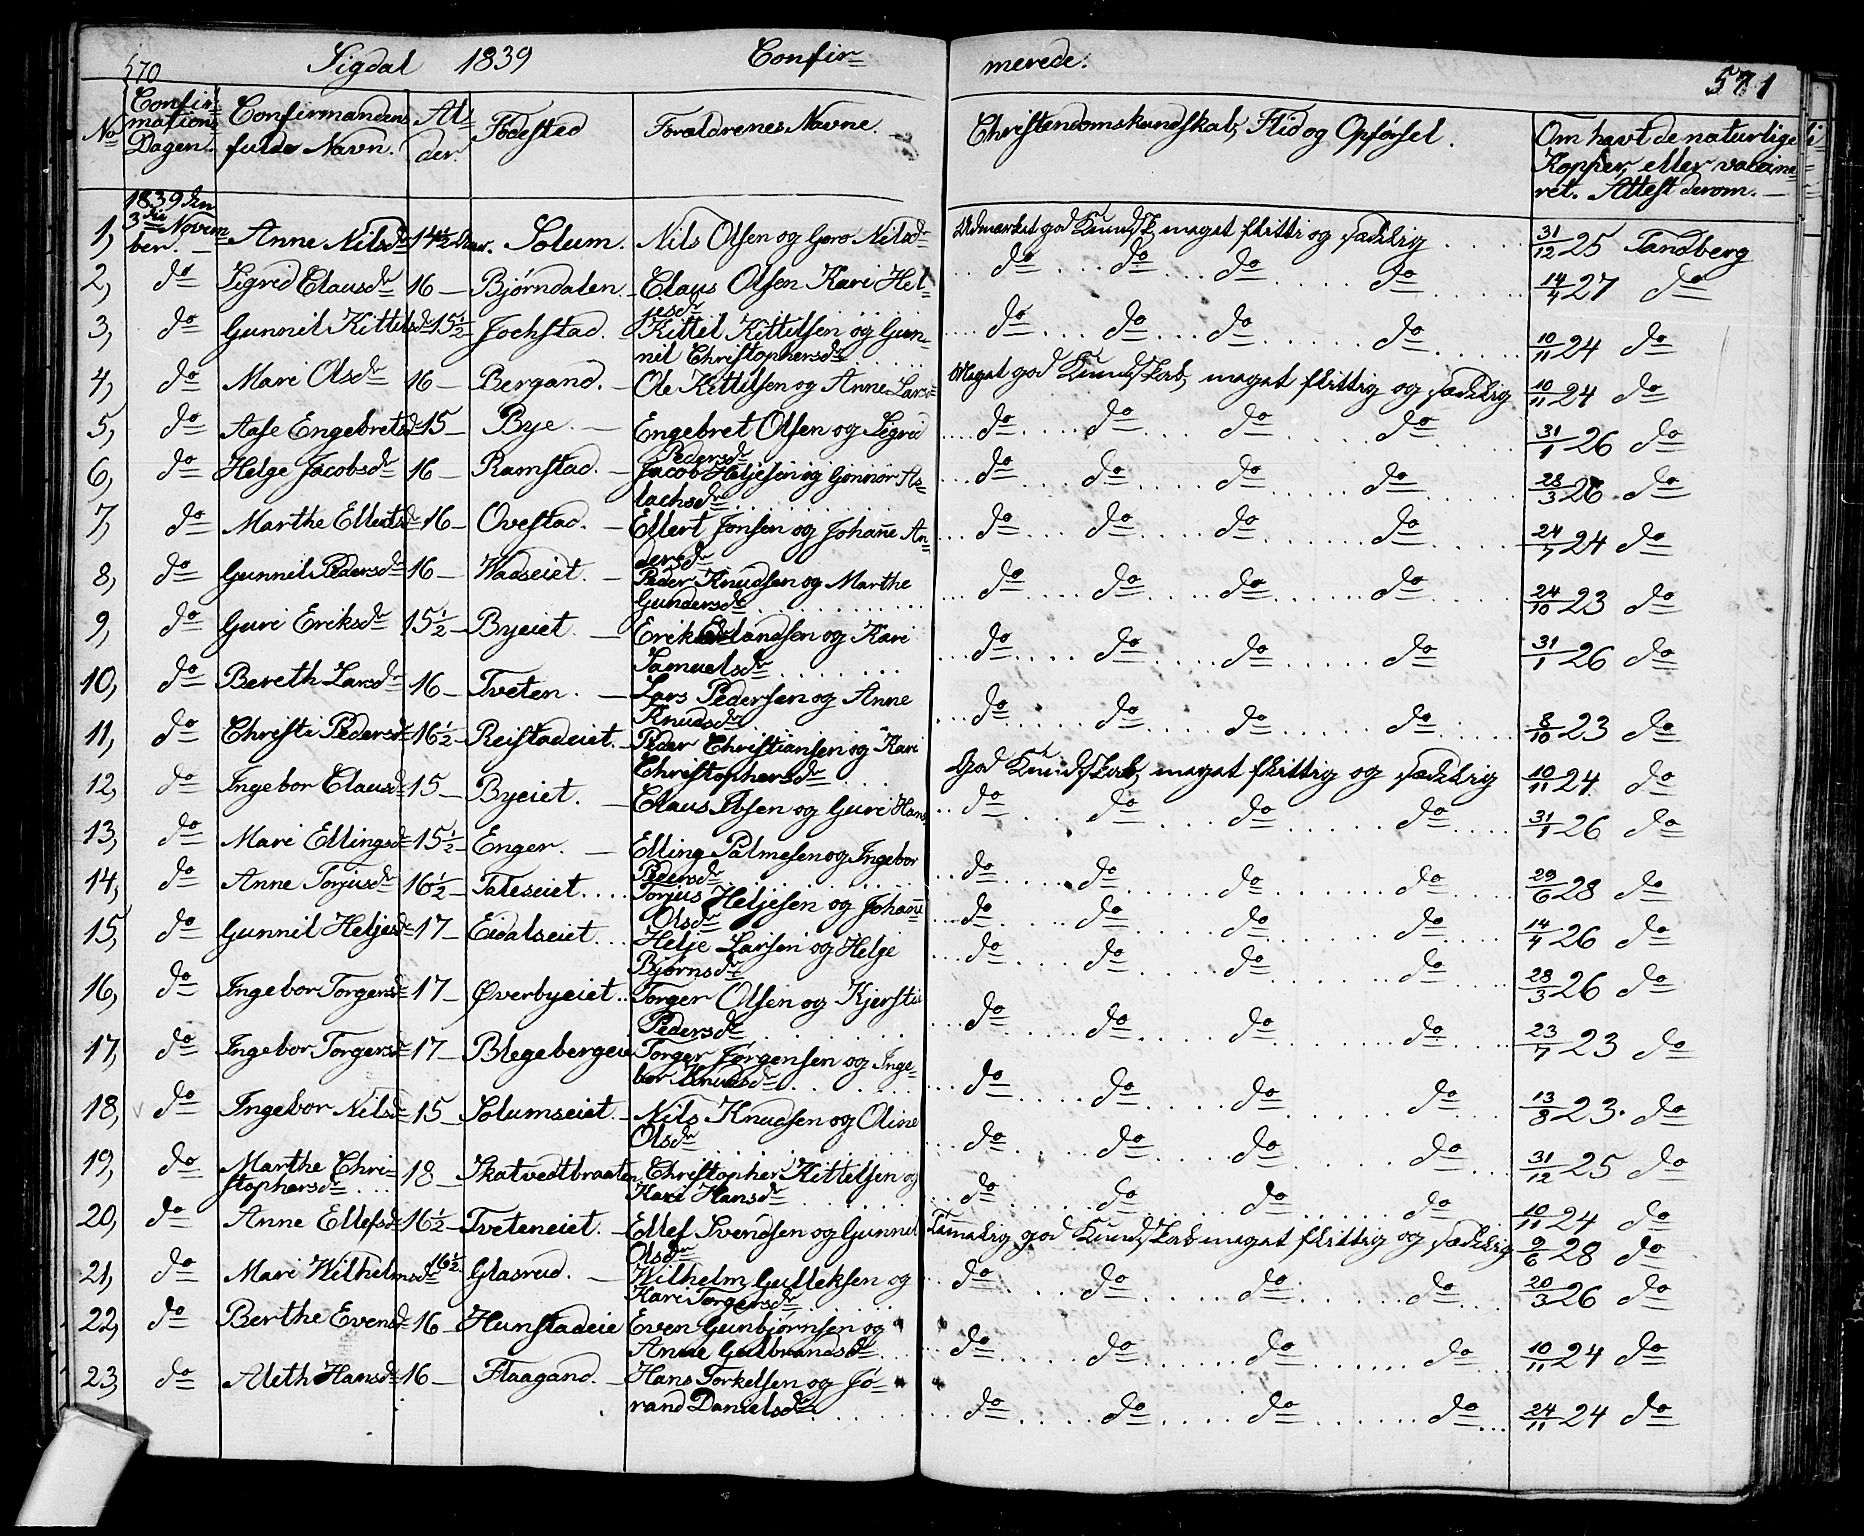 570 Sigdal 1839 Confir= merede. 571
No Confir=mations Dagen. Confirmandens fulde Navn. Al=der. Fødested Forældrenes Navne. Christendomskundskab, Flid og Opførsel. Om havt de naturlige Kopper, eller vaccineret. Attest derom. —
1839 den
3die Novem=
1, ber. Anne Nilsdr 14½ Aar. Solum. Nils Olsen og Gro Nilsdr Udmærket god Kundsk. meget flittig og sædelig 31/12 25 Tandberg
2, do Sigrid Clausdr 16 — Bjørndalen. Claus Olsen Kari Hel= do do do do 14/4 27 do
jesdr
3, do Gunnil Kittilsdr 15½ Jochstad. Kittil Kittilsen og Gun= do do do do 10/11 24 do
nil Christophersdr
4, do Mari Olsdr 16 — Bergand. — Ole Kittilsen og Anne Larsdr Meget god Kundskab, meget flittig og sædelig 10/11 24 do
5, do Aase Engebretsdr 15 — Bye — Engebret Olsen og Sigrid do do do do 31/1 26 do
Pedersdr
6, do Helge Jacobsdr 16 — Ramstad. — Jacob Heljesen og Gunnor As= do do do do 28/3 26 do
lachsdr
7, do Marthe Ellertsdr 16 — Ovestad. — Ellert Jonsen og Johane An= do do do do 24/7 24 do
dersdr
8, do Gunnil Pedersdr 16 — Wadseiet. — Peder Knudsen og Marthe do do do do 24/10 23 do
Gundersdr
9, do Guri Eriksdr 15½ — Byeiet. — Erik Erlandsen og Kari do do do do 31/1 26 do
Samuelsdr
10, do Bereth Larsdr 16 — Tveten. — Lars Pedersen og Anne do do do do 8/10 23 do
Knudsdr
11, do Christi Pedersdr 16½ Reistadeiet. Peder Christiansen og Kari God Kundskab, meget flittig og sædelig 10/11 24 do
Christophersdr
12, do Ingebor Clausdr 15 — Byeiet. — Claus Ibsen og Guri Hans do do do do 31/1 26 do
13, do Mari Ellingsdr 15½ Enger. — Elling Palmesen og Ingebor do do do do 29/6 28 do
Pedersdr
14, do Anne Torjusdr 16½ — Taleseiet. Torjus Heljesen og Johane do do do do 14/4 26 do
Olsdr
15, do Gunnil Heljesdr 17 — Eidalseiet. Helje Larsen og Helge do do do do 28/3 26 do
Bjørnsdr
16, do Ingebor Torgersdr 17 — Øverbyeiet. Torger Olsen og Kjersti do do do do 23/7 23 do
Pedersdr
17, do Ingebor Torgersdr 17 — Blegebergeie Torger Jørgensen og Inge= do do do do 13/8 23. do
bor Knudsdr
18, do Ingebor Nilsdr 15 Solumseiet. — Nils Knudsen og Oline do do do do 31/12 25 do
Olsdr
19, do Marthe Chri= 18 — Skatvedtbraaten Christopher Kittelsen og do do do do 10/11 24 do
stophersdr Kari Hansdr
20, do Anne Ellefsdr 16½ — Tveteneiet. — Ellef Svendsen og Gunnel Temelig god Kundskab meget flittig og sædelig 9/6 28 do
Olsdr
21, do Mari Wilhelmsdr 16½ Glasrud. — Wilhelm Gulleksen og do do do do 20/3 26 do
Kari Torgersdr
22, do Berthe Evensdr 16 — Hunstadeie Even Gunbjørnsen og do do do do 10/11 24 do
Anne Gulbrandsdr
23, do Aleth Hansdr 16 — Flaagand. — Hans Torkelsen og Jø= do do do do 24/11 24 do
rand Danielsdr.